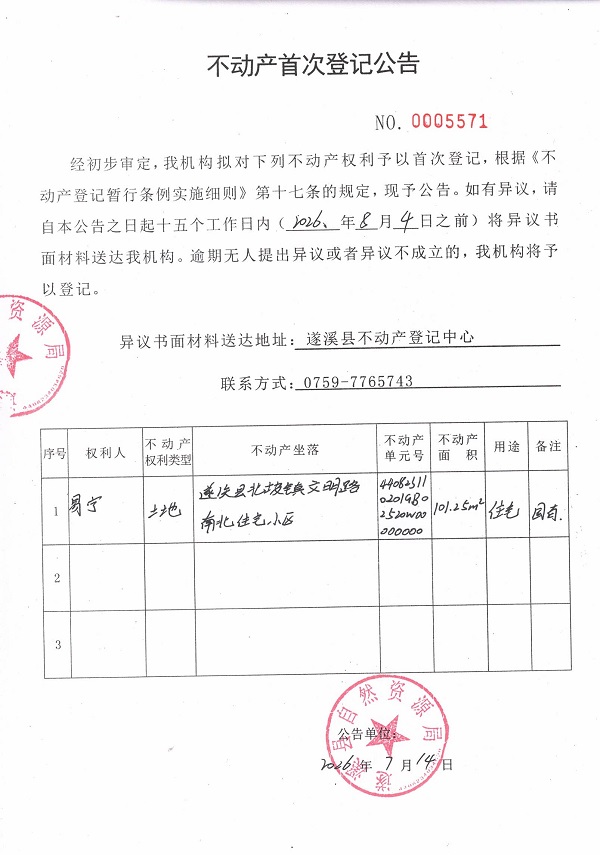 不动产首次登记公告
NO. 0005571
经初步审定，我机构拟对下列不动产权利予以首次登记，根据《不
动产登记暂行条例实施细则》第十七条的规定，现予公告。如有异议，请
自本公告之日起十五个工作日内（2026、年8月4日之前）将异议书
面材料送达我机构。逾期无人提出异议或者异议不成立的，我机构将予
以登记。
异议书面材料送达地址：遂溪县不动产登记中心
联系方式：0759-7765743
序号 权利人 不动产权利类型 不动产坐落 不动产单元号 不动产面积 用途 备注
1 易宁 土地 遂溪县北坡镇文明路
南北住宅小区
44082511
0201GB0
2520W00
000000
101.25m² 住宅 国有.
2
3
公告单位：
2026年7月14日
遂溪县自然资源局
资源局